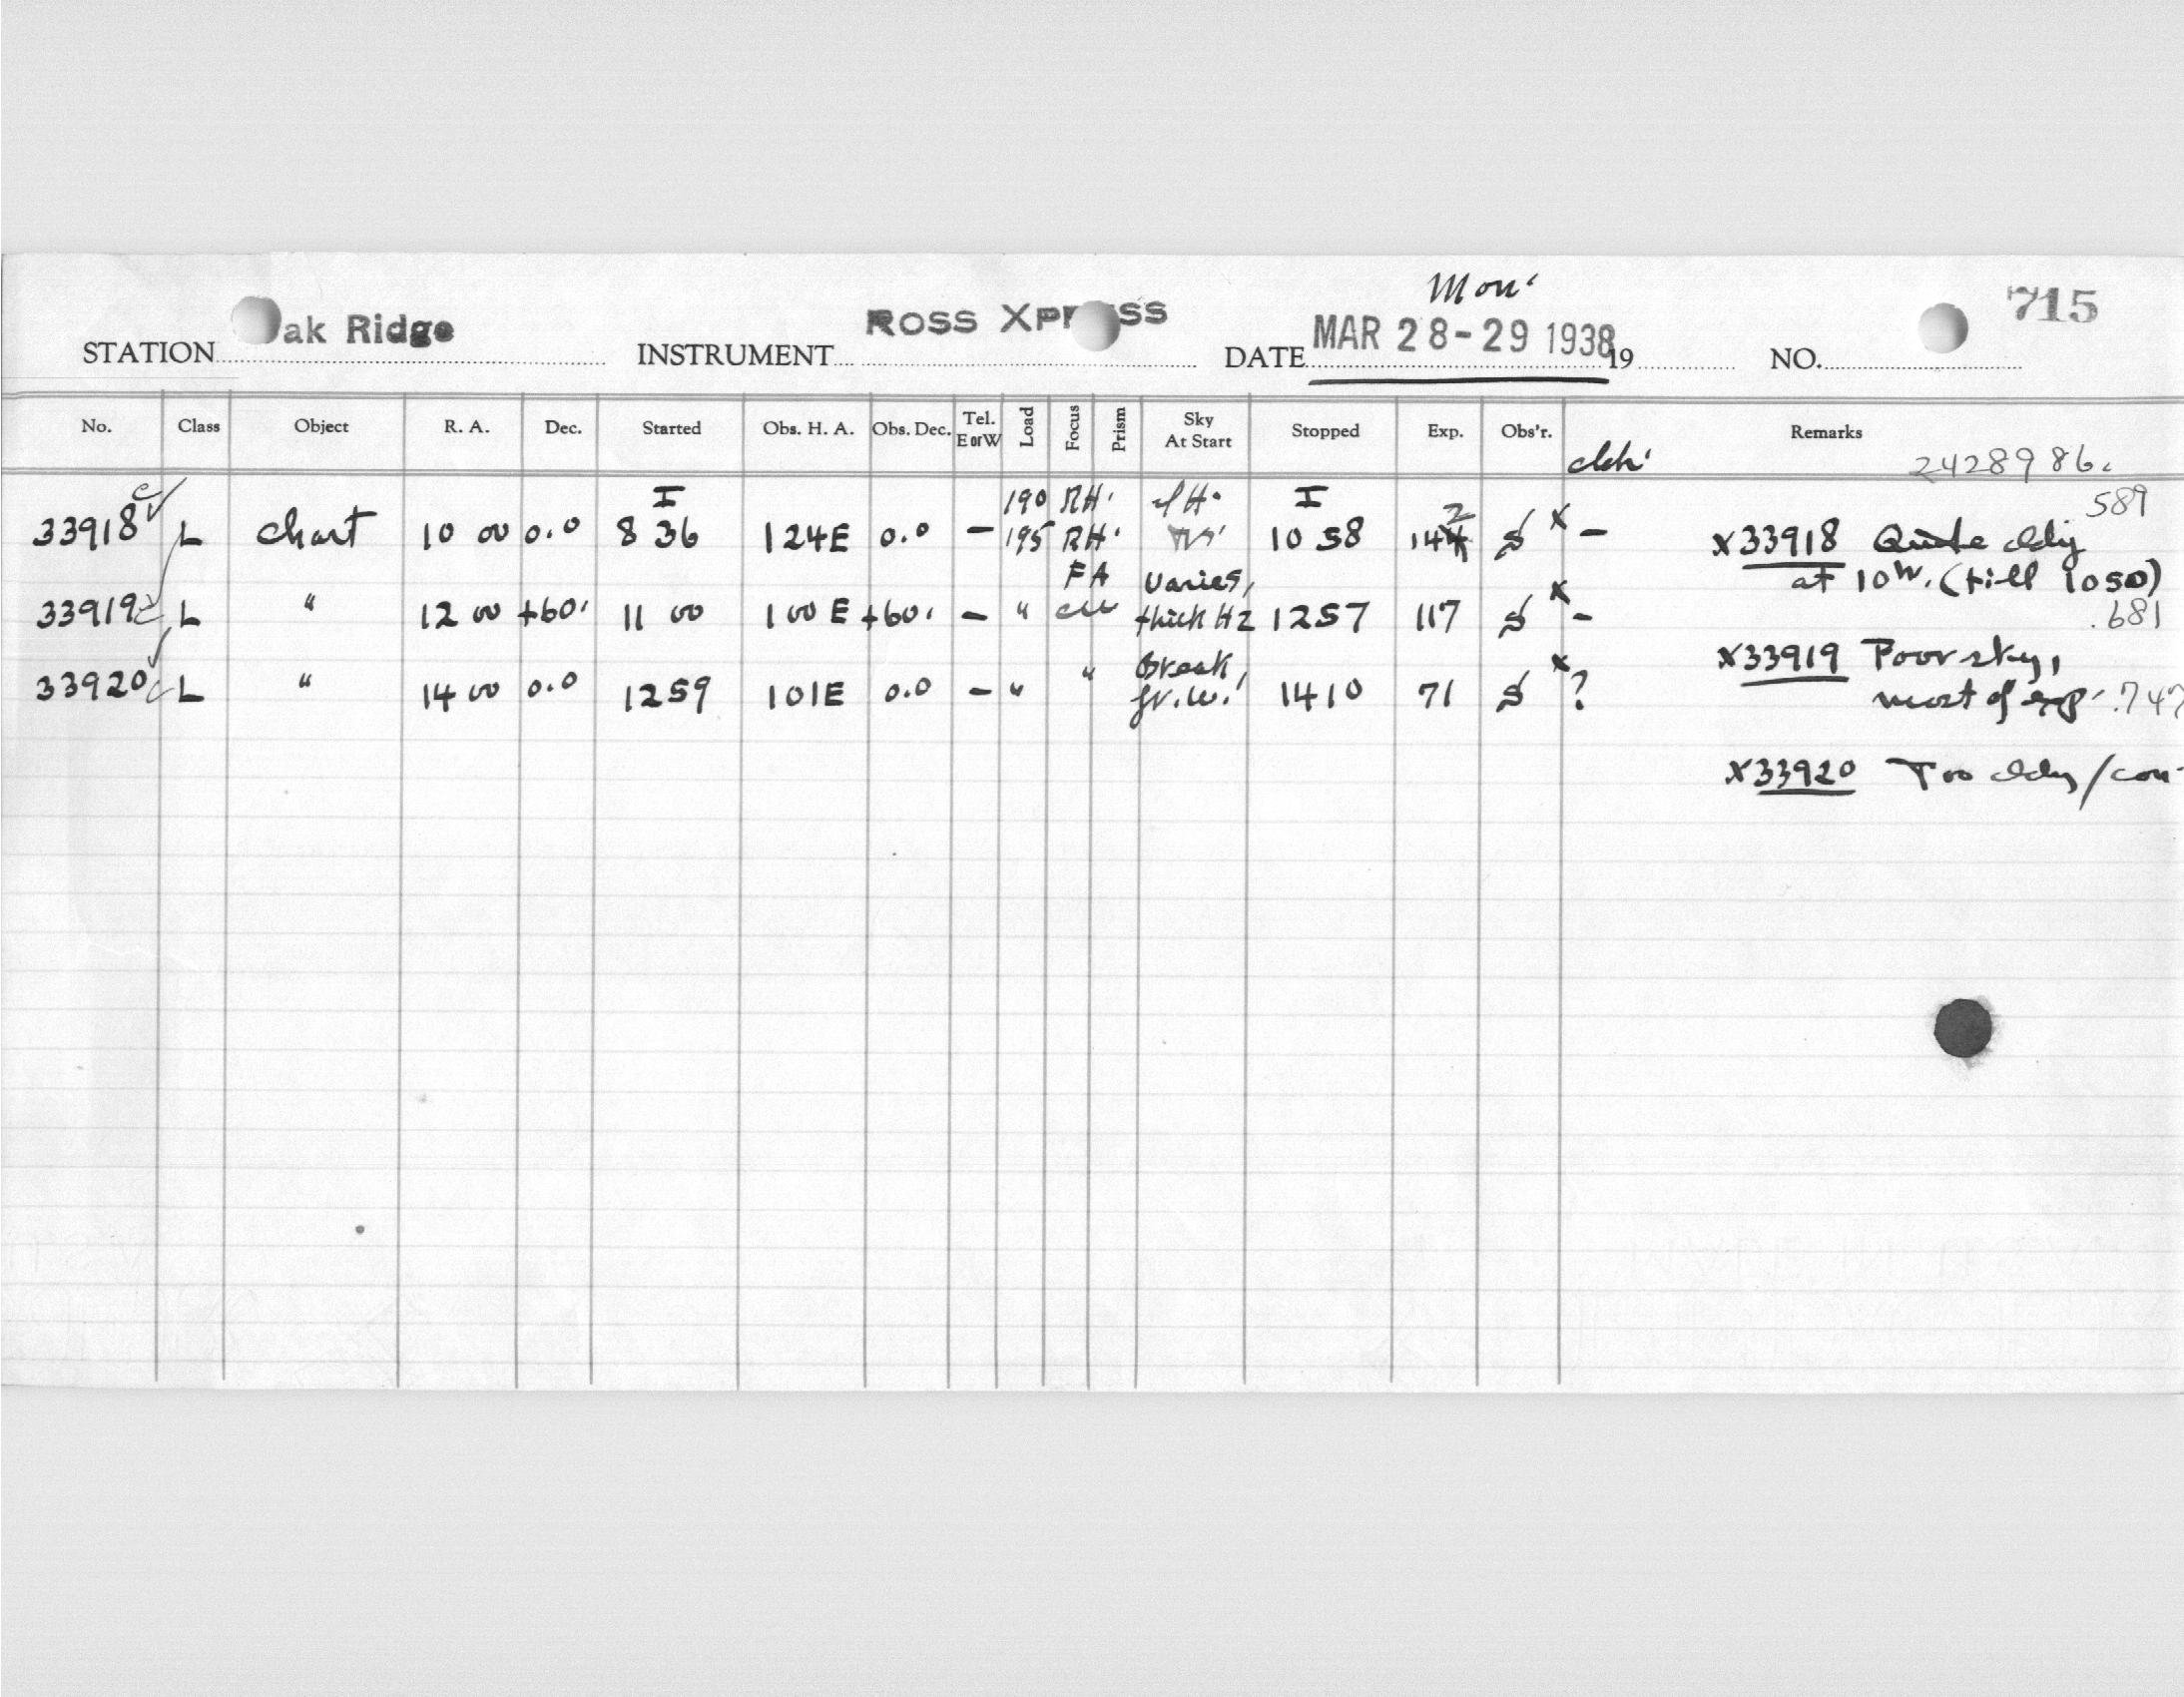 Mon.
715
STATION Oak Ridge INSTRUMENT ROSS XPRESS DATE MAR 28-29 1938 19 NO.
No. Class Object R. A. Dec. Started Obs. H. A. Obs. Dec. Tel. E or W Load Focus Prism Sky At Start Stopped Exp. Obs'r. Remarks
2428986.
I 190 RH. I 2 589
33918 L Chart 10 00 0.0 8 36 124E 0.0 - 195 RH. 10 58 144 S x - x33918 Quite cldy
FA Varies, at 10W. (till 1050)
33919 L " 12 00 +60. 11 00 100E +60. - " thick Hz 1257 117 S x - .681
Break, x33919 Poor sky,
33920 L " 14 00 0.0 1259 101E 0.0 - " " fr.W. 1410 71 S x ? most of exp. .747
x33920 Too cldy/con-